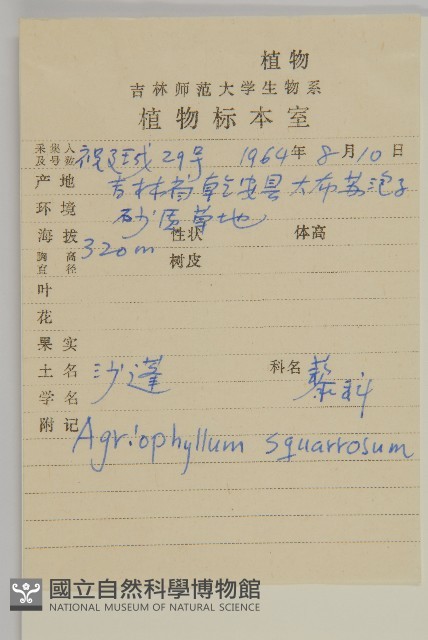 植物
吉林师范大学生物系
植物标本室
采集人及号数 祝廷成 29号 1964年8月10日
产地 吉林省乾安县大布苏泡子
环境 砂质草地
海拔 320m 性状 体高
胸高直径 树皮
叶
花
果实
土名 沙蓬 科名 藜科
学名
附记 Agriophyllum squarrosum
國立自然科學博物館
NATIONAL MUSEUM OF NATURAL SCIENCE